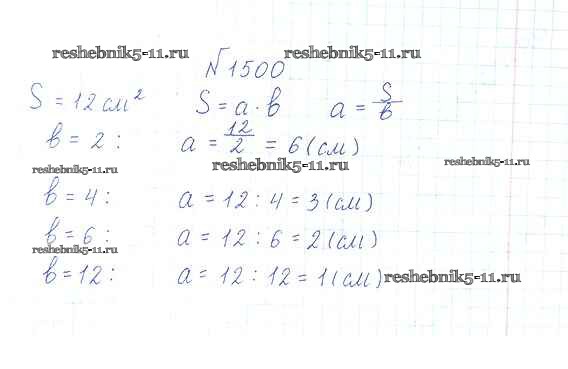 reshebnik5-11.ru reshebnik5-11.ru
№1500
S = 12 см² S = a · b a = S/b
b = 2 : a = 12/2 = 6 (см)
reshebnik5-11.ru reshebnik5-11.ru reshebnik5-11.ru
b = 4 : a = 12 : 4 = 3 (см)
b = 6 : a = 12 : 6 = 2 (см)
reshebnik5-11.ru
b = 12 : a = 12 : 12 = 1 (см) reshebnik5-11.ru